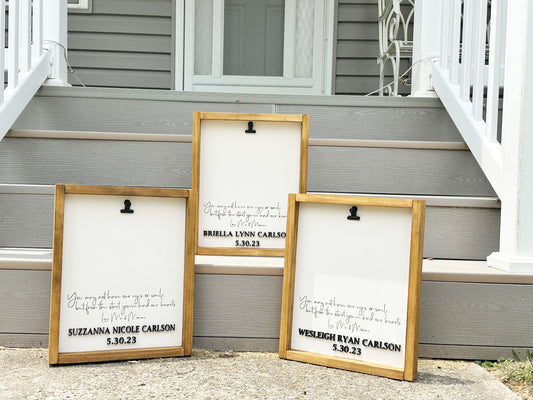 You may not have our eyes or smile,
but from the start you've had our hearts.
Love, Mr & Mama
BRIELLA LYNN CARLSO
5.30.23
You may not have our eyes or smile,
but from the start you've had our hearts.
SUZZANNA NICOLE CARLSON
5.30.23
You may not have our eyes or smile,
but from the start you've had our hearts.
WESLEIGH RYAN CARLSON
5.30.23